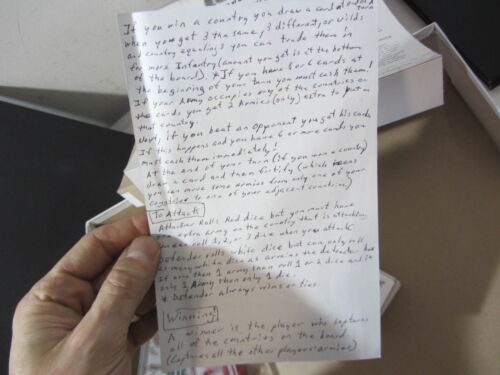 If you win a country you draw a card at end
turn
when you get 3 the same, 3 different, or wilds
and country equaling 3 you can trade them in
for more Infantry (amount you get is at the bottom
of the board). * If you have 5 or 6 cards at
the beginning of your turn you must cash them!
If your Army occupies any of the countries on
the cards you get 2 Armies (only) extra to put on
that country.
Next, if you beat an opponent you get his cards
If this happens and you have 6 or more cards you
must cash them immediately!
At the end of your turn (if you won a country)
draw a card and then fortify (which means
you can move some armies from only one of your
countries to one of your adjacent countries)
To Attack
Attacker Rolls Red dice but you must have
extra army on the country that is attacking
you can roll 1, 2, or 3 dice when you attack.
Defender rolls white dice but can only roll
as many white dice as armies the defender has
If more then 1 army than roll 1 or 2 dice and if
only 1 Army then only 1 die.
* Defender always wins on ties.
Winning!
A winner is the player who captures
all of the countries on the board
(captures all the other players armies)